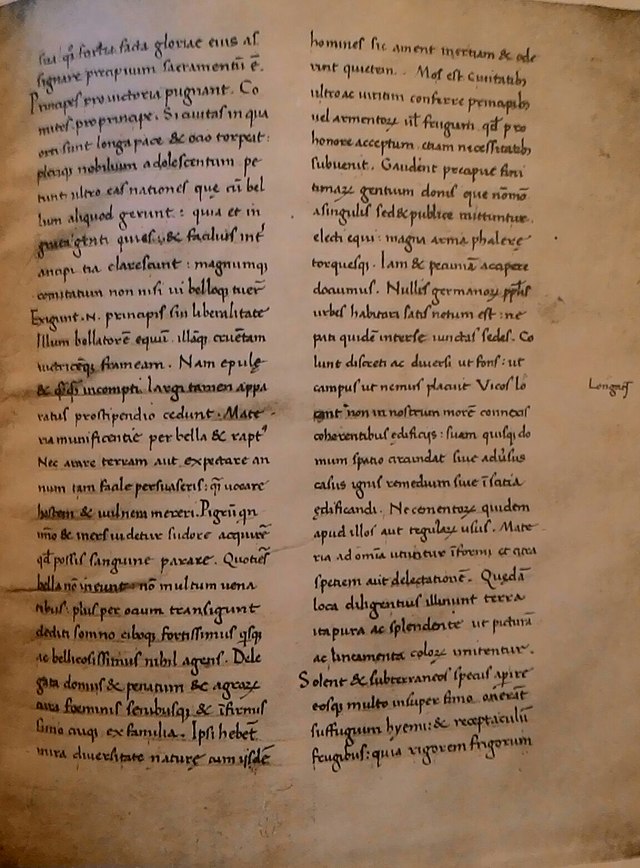 sua q̄ꝫ fortia facta gloriae eius as
signare precipuum sacramentū ē.
Principes pro uictoria pugnant. Co
mites pro principe. Si ciuitas in qua
orti sunt longa pace & ocio torpeit:
pleriq; nobilium adolescentum pe
tunt ultro eas nationes que cū bel
lum aliquod gerunt: quia et in
grata genti quies; & facilius inť
ancipitia clarescunt: magnumq;
comitatum non nisi ui belloq; tuer̄
Exigunt .N. principis sui liberalitate
Illum bellatorē equū. illāq; cruētam
uictricēq; frameam. Nam epulę
& q̄q̄ incompti largi tamen appa
ratus pro stipendio cedunt. Mate
ria munificentie per bella & rapt᾽
Nec arare terram aut expectare an
num tam facile persuaseris: q̄ uocare
hostem & uulnera mereri. Pigrū qn
īmo & iners uidetur sudore acquirē
qđ possis sanguine parare. Quotiēs
bella nō ineunt nō multum uena
tibus: plus per ocium transigunt
dediti somno ciboq; fortissimus q̄sq;
ac bellicosissimus nihil agens. Dele
gata domus & penatum & agroꝝ
cura foeminis senibusq; & īfirmis
simo cuiq; ex familia. Ipsi hebēt
mira diuersitate naturę cum ijsdē
homines sic ament inertiam & ode
rint quietem. Mos est Ciuitatib᾽
ultro ac uiritim conferre principib᾽
uel armentoꝝ ūl frugum. qđ pro
honore acceptum etiam necessitatib᾽
subuenit. Gaudent precipue fini
timaꝝ gentium donis que nōmō
a singulis sed & publice mittuntur.
electi equi: magna arma phalerę
torquesq;. Iam & pecuniā accipere
documus. Nullis germanoꝝ pp̄lis
urbes habitari satis notum est: ne
pati quidē inter se iunctas sedes. Co
lunt discreti ac diuersi ut fons: ut
campus ut nemus placuit Vicos lo
cant non in nostrum morē connexis
cohorentibus edificijs: suam quisq; do
mum spatio circundat siue aduſus
casus ignis remedium siue īscitia
ędificandi. Ne cementoꝝ quidem
apud illos aut tegulaꝝ usus. Mate
ria ad omīa utuntur īformi et citra
speciem aut delectationē. Quędā
loca diligentius illinunt terra
ita pura ac splendente ut picturā
ac lineamenta coloꝝ imitentur.
Solent & subterraneos specus apire
eosq; multo insuper fimo onerāt
suffugium hyemi: & receptaculū
frugibus: quia rigorem frigorum